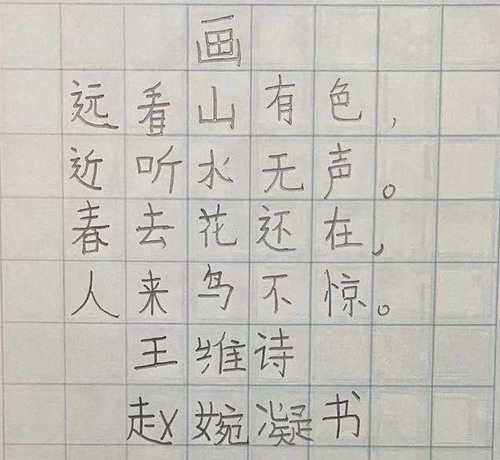 画
远看山有色,
近听水无声。
春去花还在,
人来鸟不惊。
王维诗
赵婉凝书